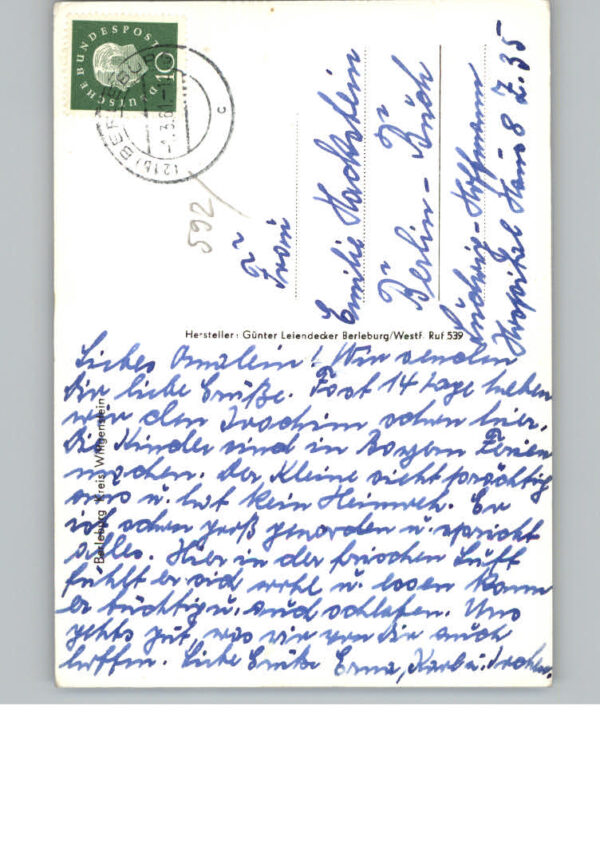 DEUTSCHE BUNDESPOST
10
(21b) BERLEBURG
-1.3.61-
c
592/
Frau
Emilie Hackstein
Berlin-Buch
Ludwig-Hoffmann
Hospital Haus 8 Z. 35
Hersteller: Günter Leiendecker Berleburg/Westf. Ruf 539
Berleburg Kreis Wittgenstein
Liebes Omalein! Wir senden
dir liebe Grüße. Fast 14 Tage haben
wir den Joachim schon hier.
Die Kinder sind in Bayern Ferien
machen. Der Kleine sieht prächtig
aus u. hat kein Heimweh. Er
ist schon groß geworden u. spricht
alles. Hier in der frischen Luft
fühlt er sich wohl u. essen kann
er tüchtig u. auch schlafen. Uns
gehts gut, was wir von dir auch
hoffen. Liebe Grüße Erna, Karl u.